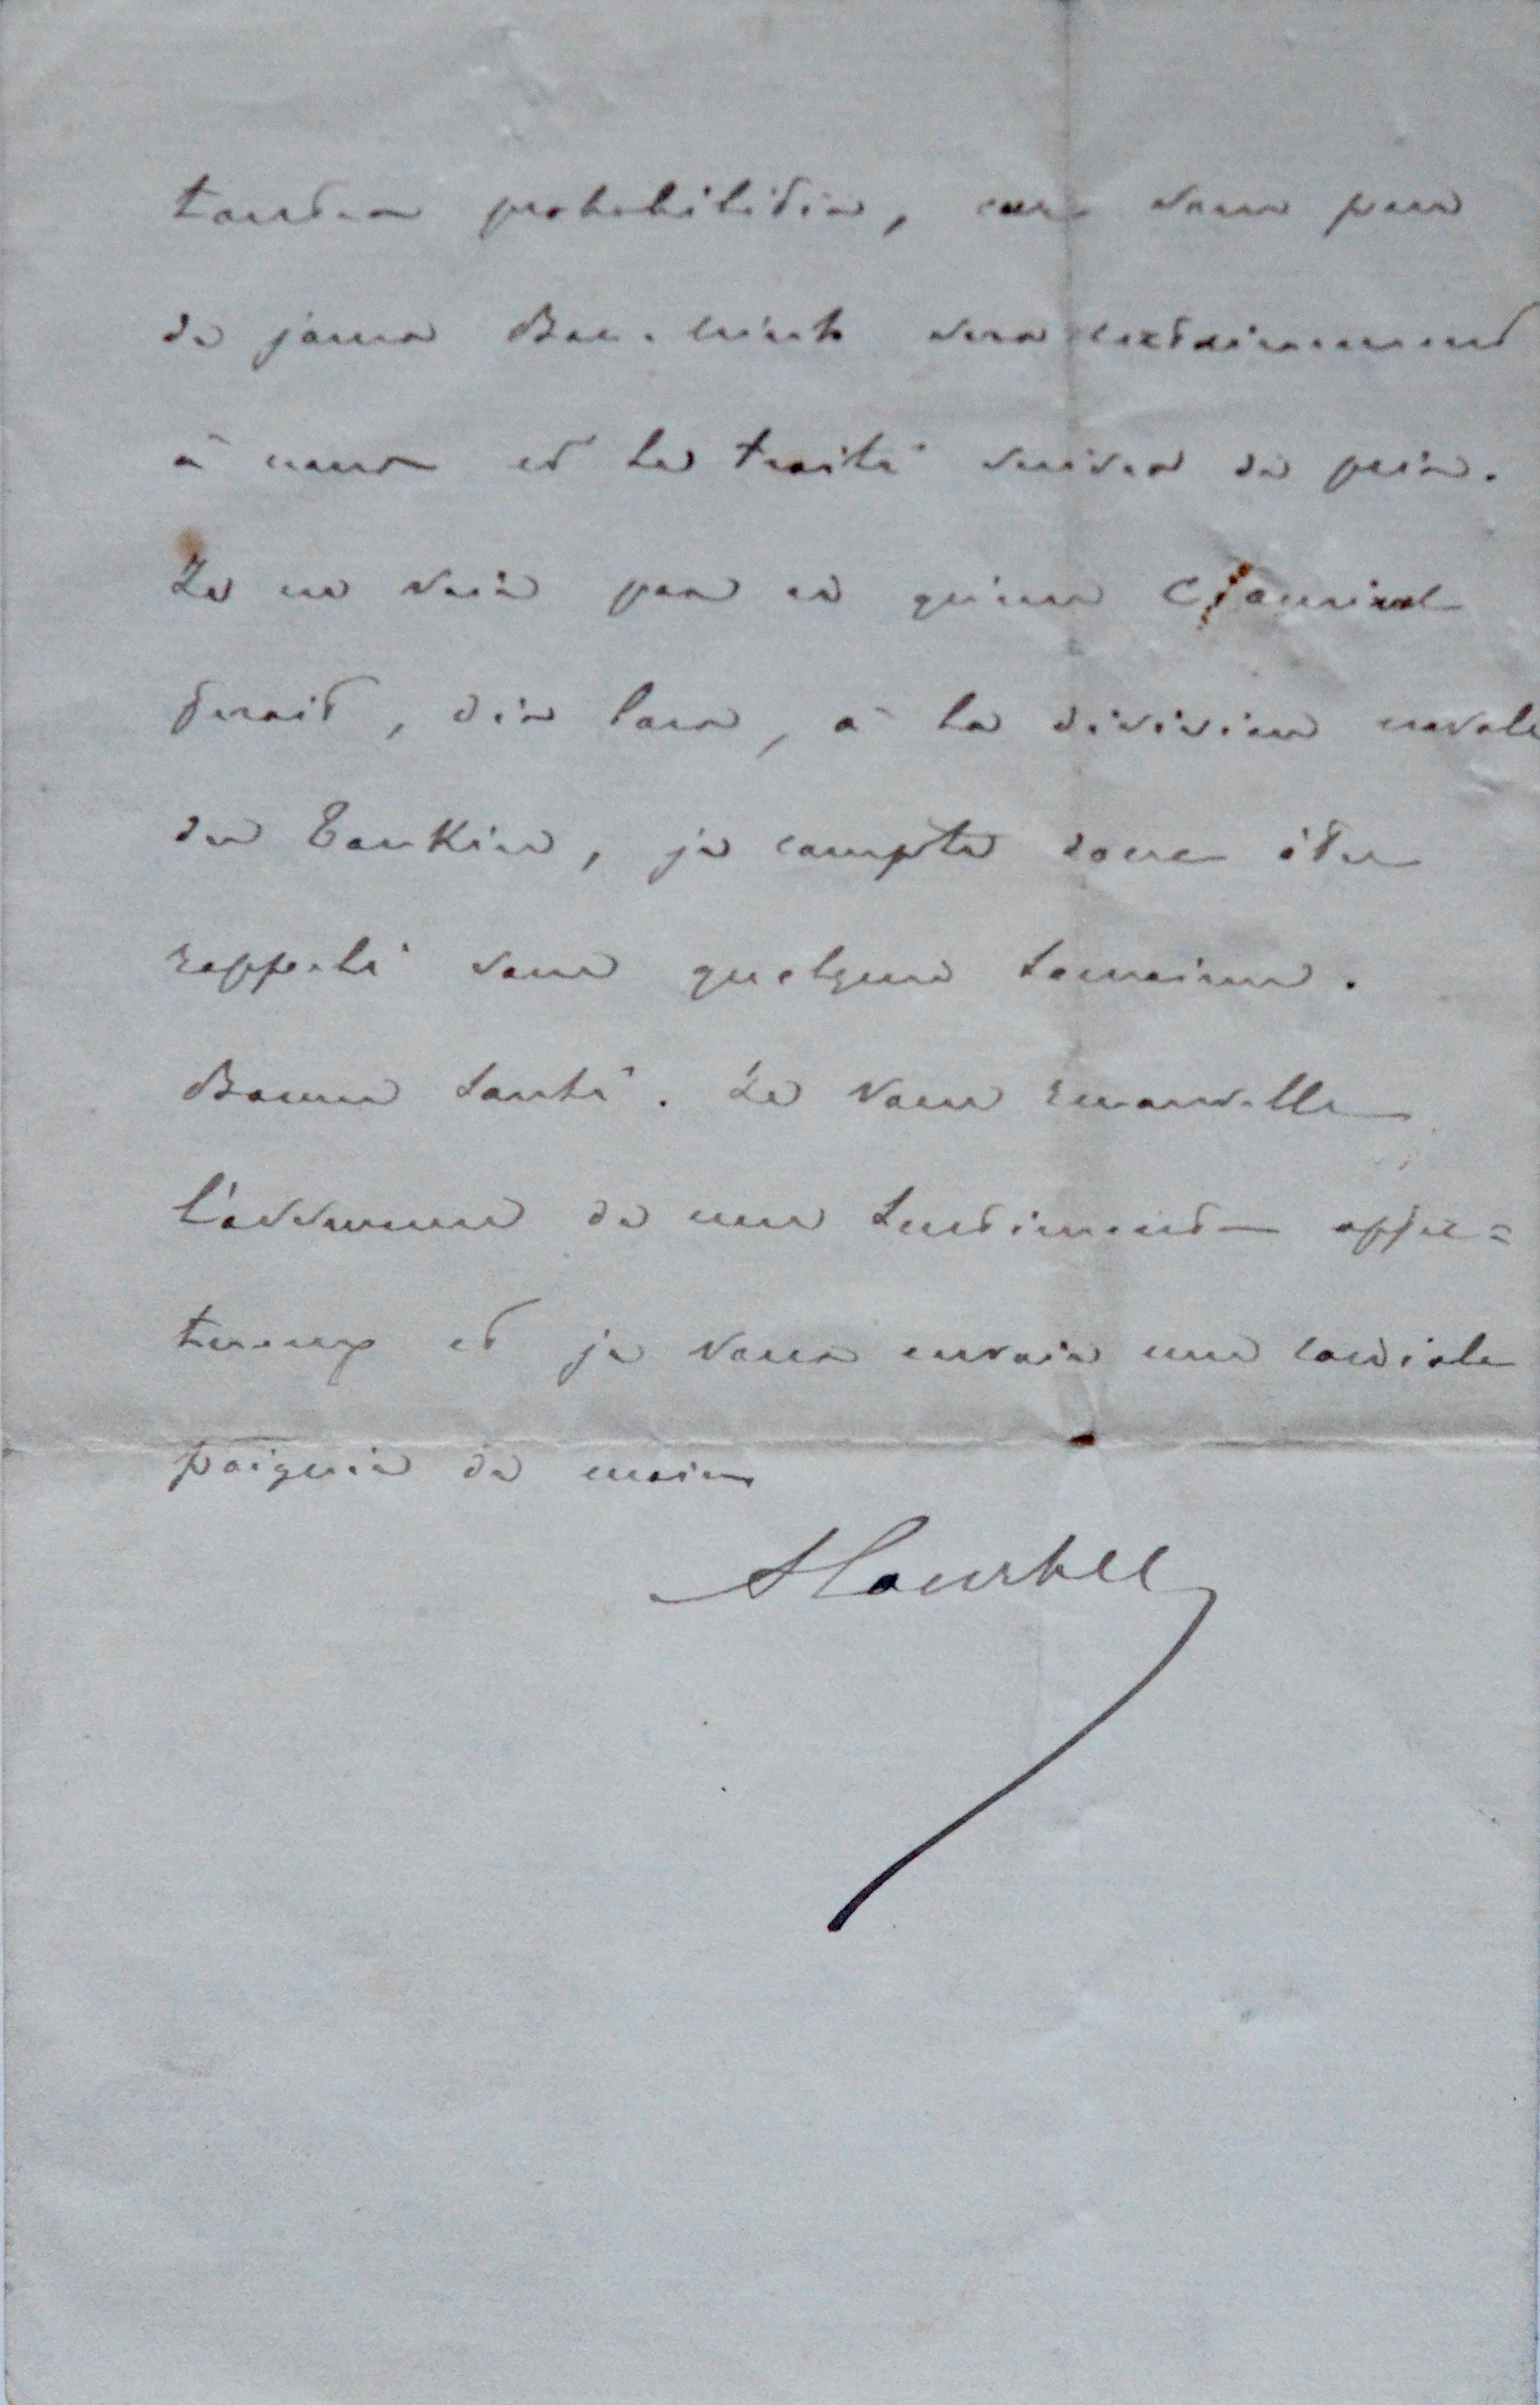 toutes probabilités, car dans peu
de jours Bac-ninh sera certainement
à nous et le traité suivra de près.
Je ne vois pas ce qu'un amiral
ferait, dès lors, à la division navale
du Tonkin, je compte donc être
rappelé dans quelques semaines.
Bonne santé. Je vous renouvelle
l'assurance de mes sentiments affec=
tueux et je vous envoie une cordiale
poignée de main
A Courbet